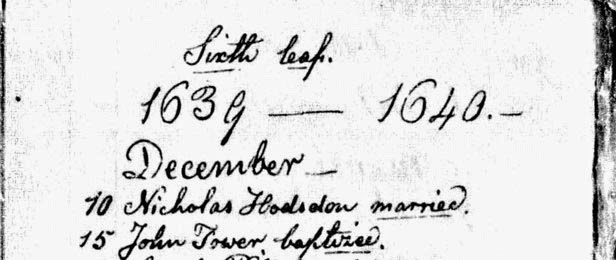 Sixth leaf.
1639 — 1640. –
December –
10 Nicholas Hodsdon married.
15 John Tower, baptized.